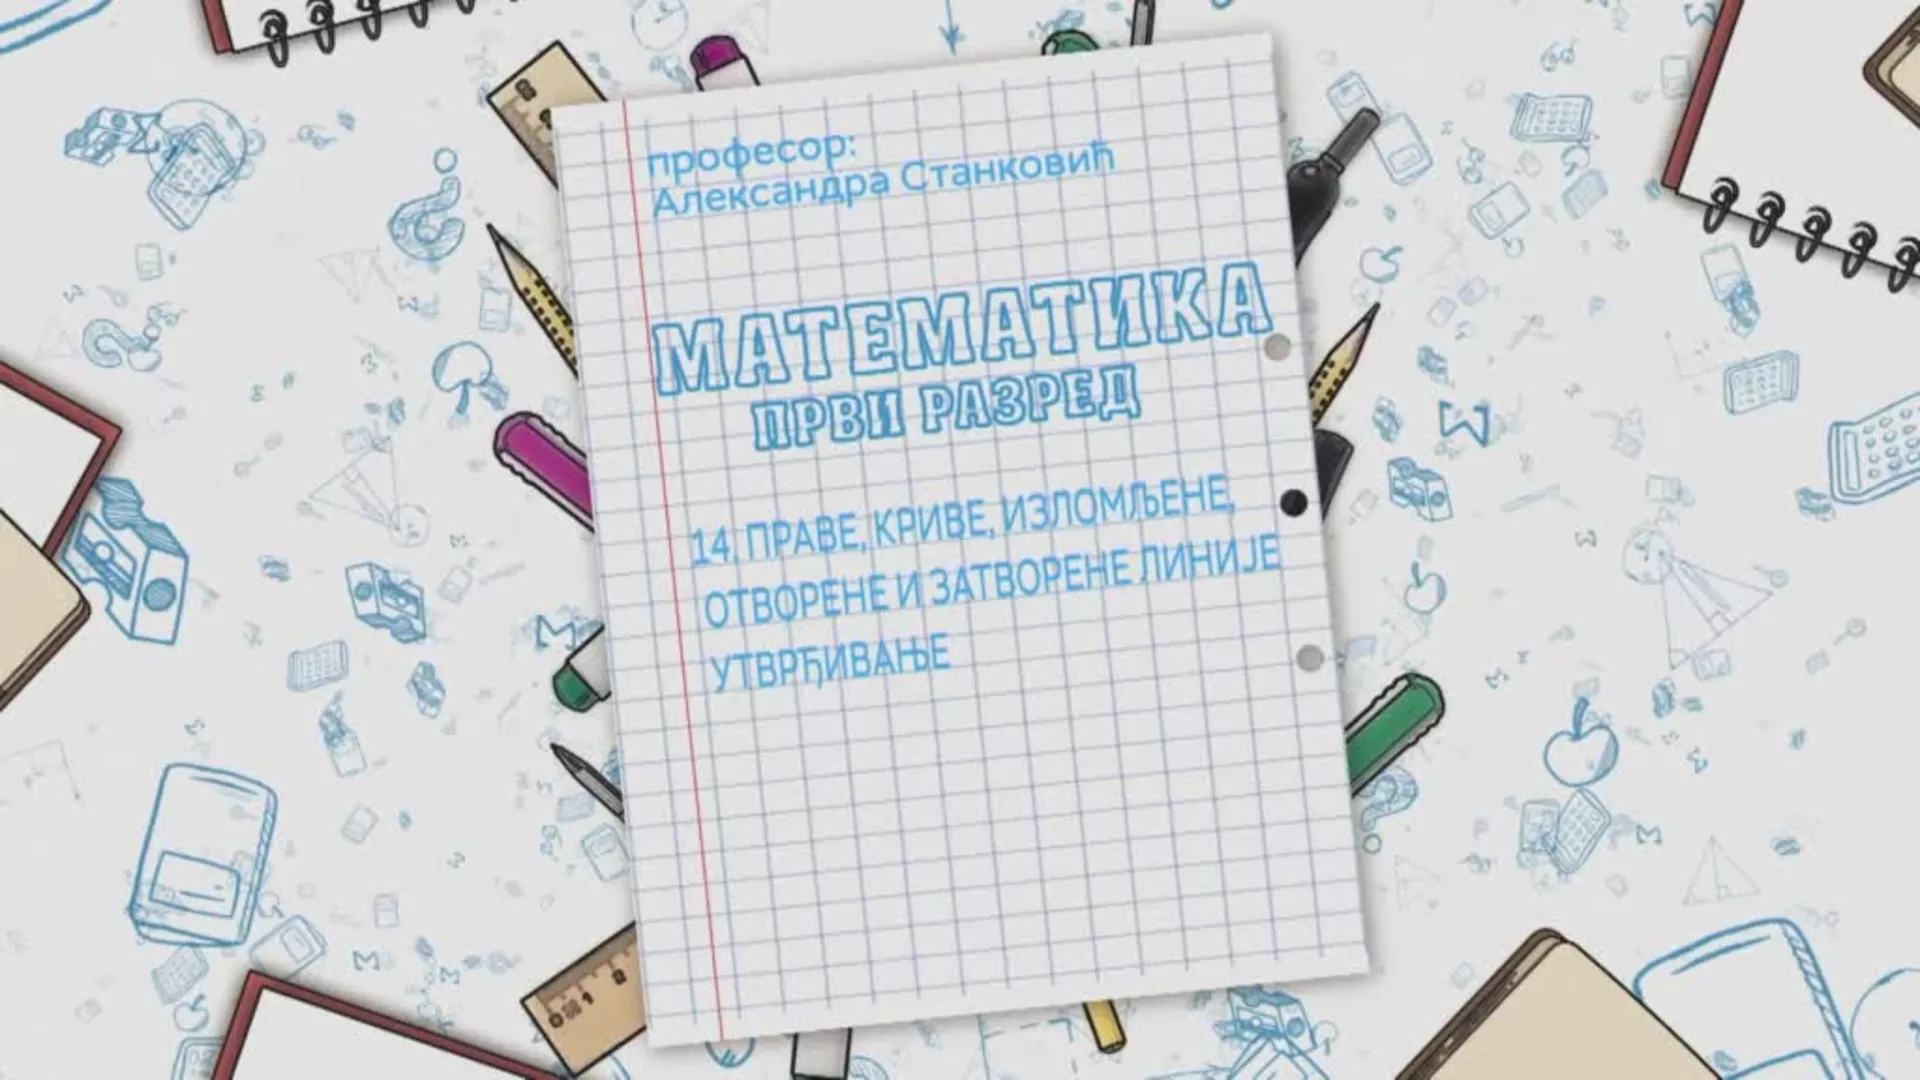 професор:
Александра Станковић
МАТЕМАТИКА
ПРВИ РАЗРЕД
14. ПРАВЕ, КРИВЕ, ИЗЛОМЉЕНЕ,
ОТВОРЕНЕ И ЗАТВОРЕНЕ ЛИНИЈЕ
УТВРЂИВАЊЕ